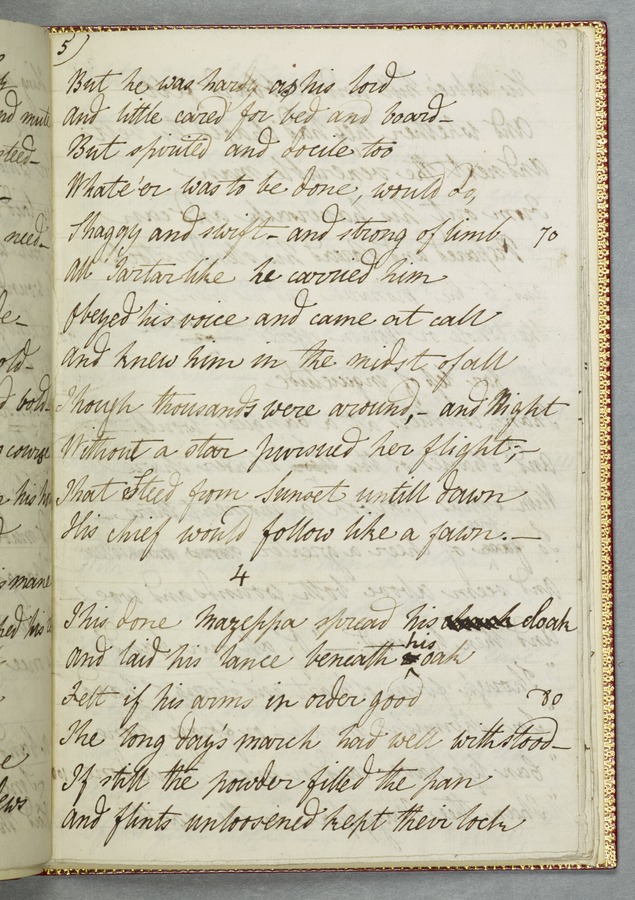 5)
But he was hardy as his lord
and little cared for bed and board—
But spirited and docile too
Whate'er was to be done, would do,
Shaggy and swift— and strong of limb, 70
All Tartar like he carried him
Obeyed his voice and came at call
and knew him in the midst of all
Though thousands were around,— and Night
Without a star pursued her flight;—
That Steed from Sunset untill dawn
His chief would follow like a fawn.—
4
This done Mazeppa spread his cloak
and laid his lance beneath his oak
Felt if his arms in order good 80
The long day's march had well withstood—
If still the powder filled the pan
and flints unloosened kept their lock
nd mute
steed—
need—
old—
d bold—
courge
s mane